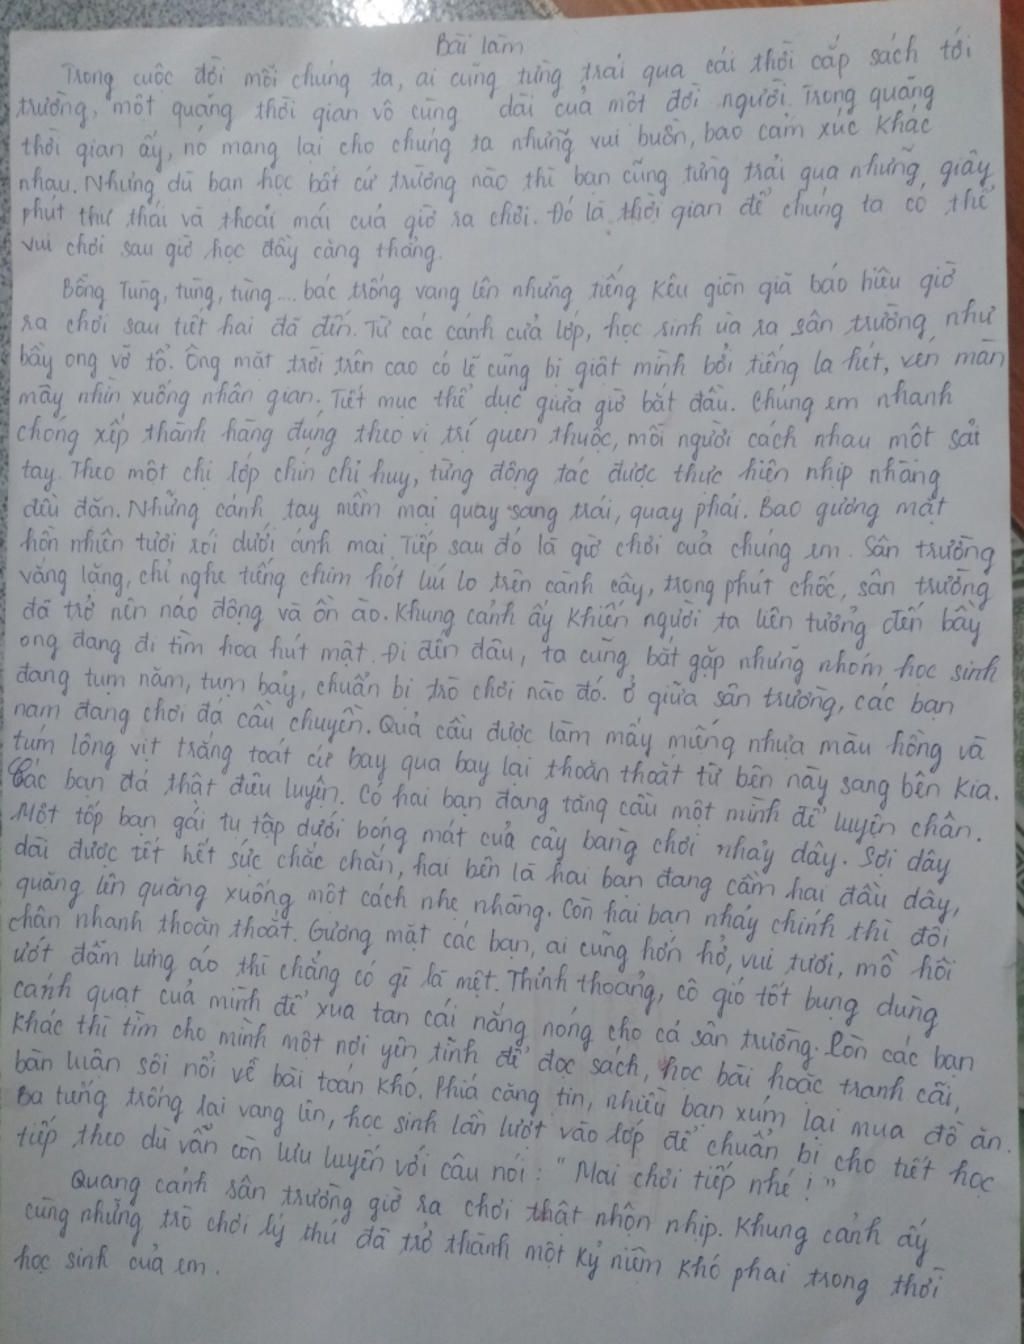 Bài làm
Trong cuộc đời mỗi chúng ta, ai cũng từng trải qua cái thời cắp sách tới
trường, một quãng thời gian vô cùng dài của một đời người. Trong quãng
thời gian ấy, nó mang lại cho chúng ta những vui buồn, bao cảm xúc khác
nhau. Nhưng dù bạn học bất cứ trường nào thì bạn cũng từng trải qua những giây
phút thư thái và thoải mái của giờ ra chơi. Đó là thời gian để chúng ta có thể
vui chơi sau giờ học đầy căng thẳng.
Bỗng Tùng, tùng, tùng.... bác trống vang lên những tiếng kêu giòn giã báo hiệu giờ
ra chơi sau tiết hai đã đến. Từ các cánh cửa lớp, học sinh ùa ra sân trường như
bầy ong vỡ tổ. Ông mặt trời trên cao có lẽ cũng bị giật mình bởi tiếng la hét, vén màn
mây nhìn xuống nhân gian. Tiết mục thể dục giữa giờ bắt đầu. Chúng em nhanh
chóng xếp thành hàng đứng theo vị trí quen thuộc, mỗi người cách nhau một sải
tay. Theo một chị lớp chín chỉ huy, từng động tác được thực hiện nhịp nhàng
đều đặn. Những cánh tay mềm mại quay sang trái, quay phải. Bao gương mặt
hồn nhiên tươi rói dưới ánh mai. Tiếp sau đó là giờ chơi của chúng em. Sân trường
vắng lặng, chỉ nghe tiếng chim hót líu lo trên cành cây, trong phút chốc, sân trường
đã trở nên náo động và ồn ào. Khung cảnh ấy khiến người ta liên tưởng đến bầy
ong đang đi tìm hoa hút mật. Đi đến đâu, ta cũng bắt gặp những nhóm học sinh
đang tụm năm, tụm bảy, chuẩn bị trò chơi nào đó. Ở giữa sân trường, các bạn
nam đang chơi đá cầu chuyền. Quả cầu được làm mấy miếng nhựa màu hồng và
túm lông vịt trắng toát cứ bay qua bay lại thoăn thoắt từ bên này sang bên kia.
Các bạn đá thật điêu luyện. Có hai bạn đang tâng cầu một mình để luyện chân.
Một tốp bạn gái tụ tập dưới bóng mát của cây bàng chơi nhảy dây. Sợi dây
dài được tết hết sức chắc chắn, hai bên là hai bạn đang cầm hai đầu dây,
quăng lên quăng xuống một cách nhẹ nhàng. Còn hai bạn nhảy chính thì đôi
chân nhanh thoăn thoắt. Gương mặt các bạn, ai cũng hớn hở, vui tươi, mồ hôi
ướt đẫm lưng áo thì chẳng có gì là mệt. Thỉnh thoảng, cô gió tốt bụng dùng
cánh quạt của mình để xua tan cái nắng nóng cho cả sân trường. Còn các bạn
khác thì tìm cho mình một nơi yên tĩnh để đọc sách, học bài hoặc tranh cãi,
bàn luận sôi nổi về bài toán khó. Phía căng tin, nhiều bạn xúm lại mua đồ ăn.
Ba tiếng trống lại vang lên, học sinh lần lượt vào lớp để chuẩn bị cho tiết học
tiếp theo dù vẫn còn lưu luyến với câu nói: "Mai chơi tiếp nhé!"
Quang cảnh sân trường giờ ra chơi thật nhộn nhịp. Khung cảnh ấy
cùng những trò chơi lý thú đã trở thành một kỷ niệm khó phai trong thời
học sinh của em.